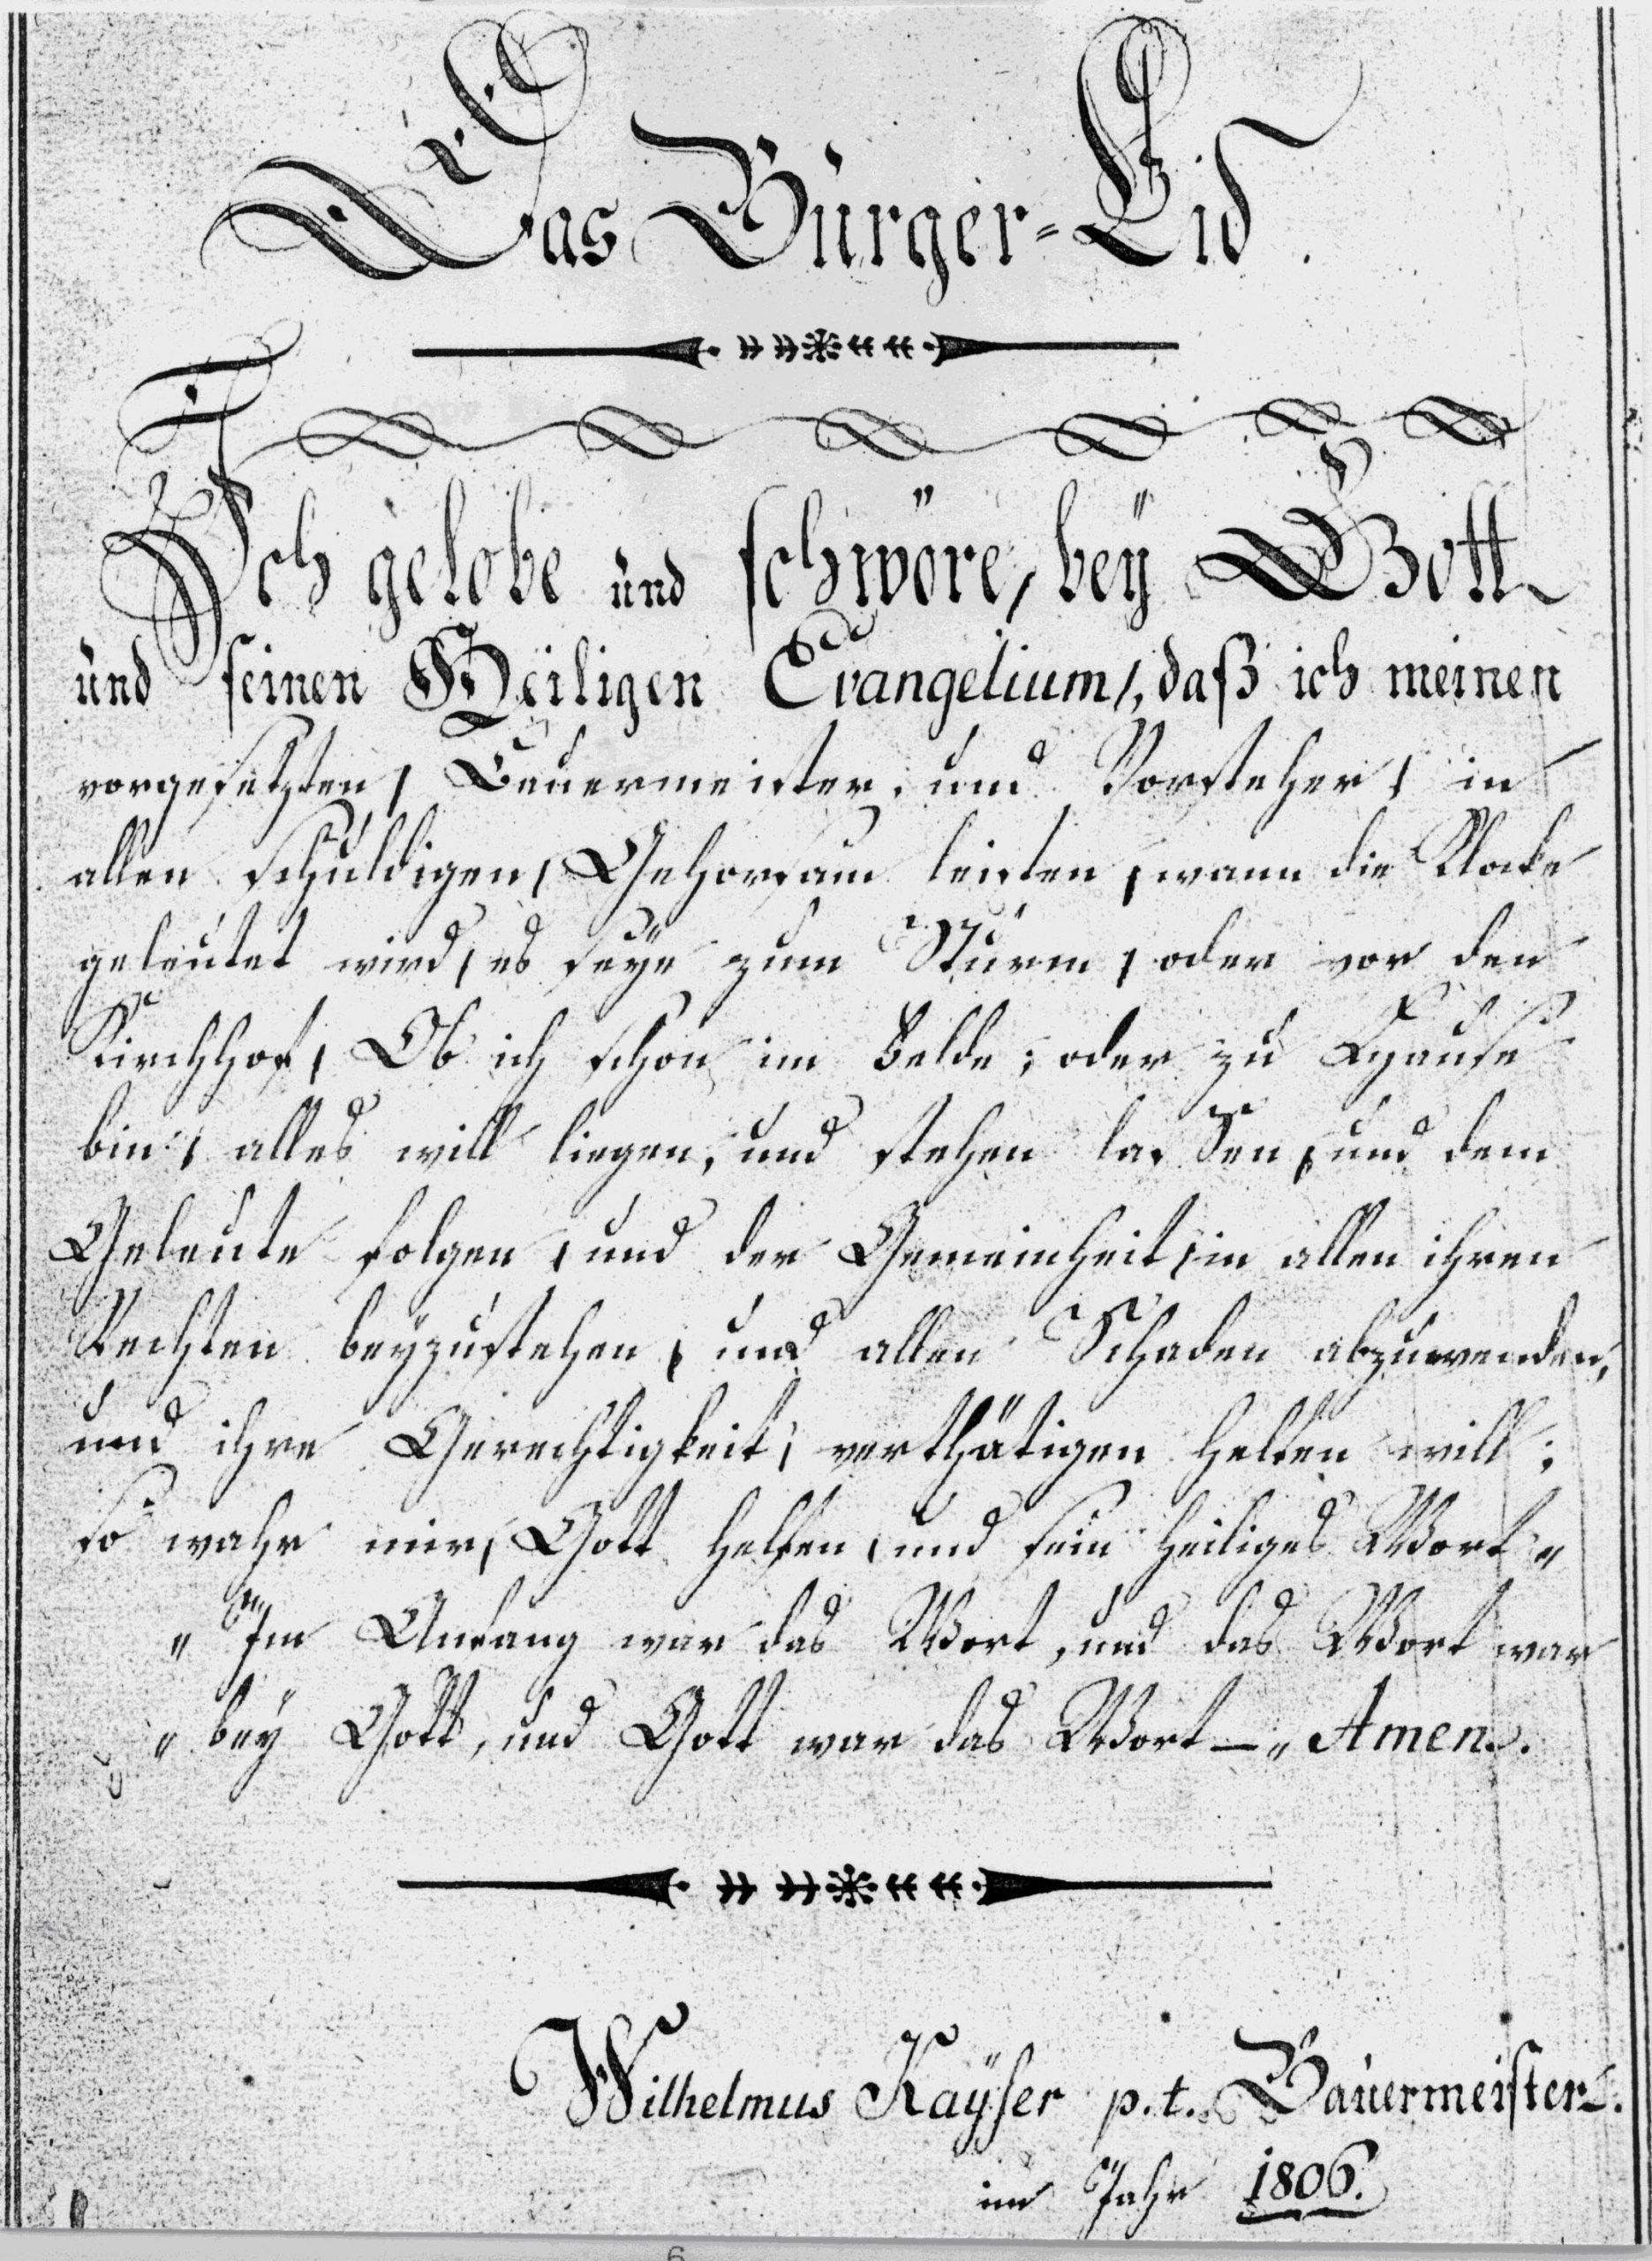 Das Bürger-Eid.
Ich gelobe und schwöre, bey Gott
und seinen Heiligen Evangelium, daß ich meinen
vorgesetzten, Bauermeister, und Vorsteher, in
allen schuldigen, Gehorsam leisten, wann die Klocke
geleutet wird, es seye zum Sturm, oder vor den
Kirchhof, Ob ich schon im Felde, oder zu Hause
bin, alles will liegen, und stehen lassen, und dem
Geleute folgen, und der Gemeinheit, in allen ihren
Rechten beyzustehen, und allen Schaden abzuwenden,
und ihre Gerechtigkeit, verthätigen helfen will;
so wahr mir, Gott helfen, und sein heiliges Wort "
" Im Anfang war das Wort, und das Wort war
" bey Gott, und Gott war das Wort — " Amen.
Wilhelmus Kayser p.t. Bauermeister.
im Jahr 1806.
6